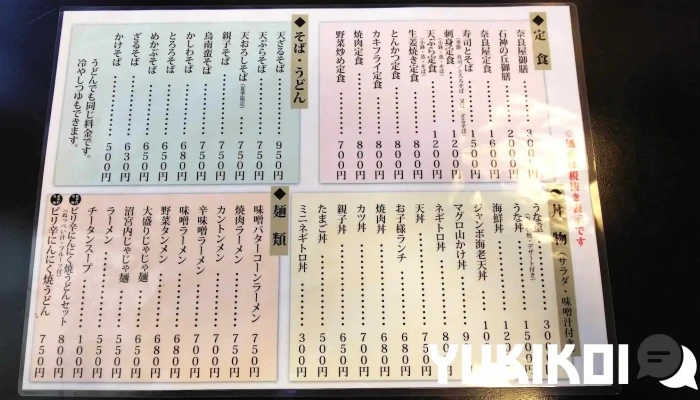 ◆定食
奈良屋御膳 3000円
石神の丘御膳 2000円
奈良屋定食 1500円
寿司とそば 1600円
刺身定食 1200円
天ぷら定食 1200円
生姜焼き定食 800円
とんかつ定食 800円
カキフライ定食 800円
焼肉定食 800円
野菜炒め定食 700円
◆そば・うどん
天ざるそば 950円
天ぷらそば 750円
親子そば 750円
天おろしそば 750円
鳥南蛮そば 750円
かしわそば 680円
とろろそば 680円
めかぶそば 630円
ざるそば 550円
かけそば 500円
うどんでも同じ料金です。
冷やしつゆもできます。
税抜き
です
丼物(サラダ・味噌汁付き
うな重
うな丼
海鮮丼
ジャンボ海老天丼
マグロ山かけ丼
ネギトロ丼
天丼
お子様ランチ 680円
焼肉丼 680円
カツ丼 700円
親子丼 650円
たまご丼 500円
ミニネギトロ丼 300円
◆麺類
味噌バターコーンラーメン 750円
焼肉ラーメン 750円
カントンメン 700円
辛味噌ラーメン 700円
味噌ラーメン 680円
野菜タンメン 680円
大盛りじゃじゃ麺 650円
沼宮内じゃじゃ麺 550円
ラーメン 500円
チータンスープ
ピリ辛にんにく焼うどんセット 800円
ピリ辛にんにく焼うどん 750円
YUKIKOI